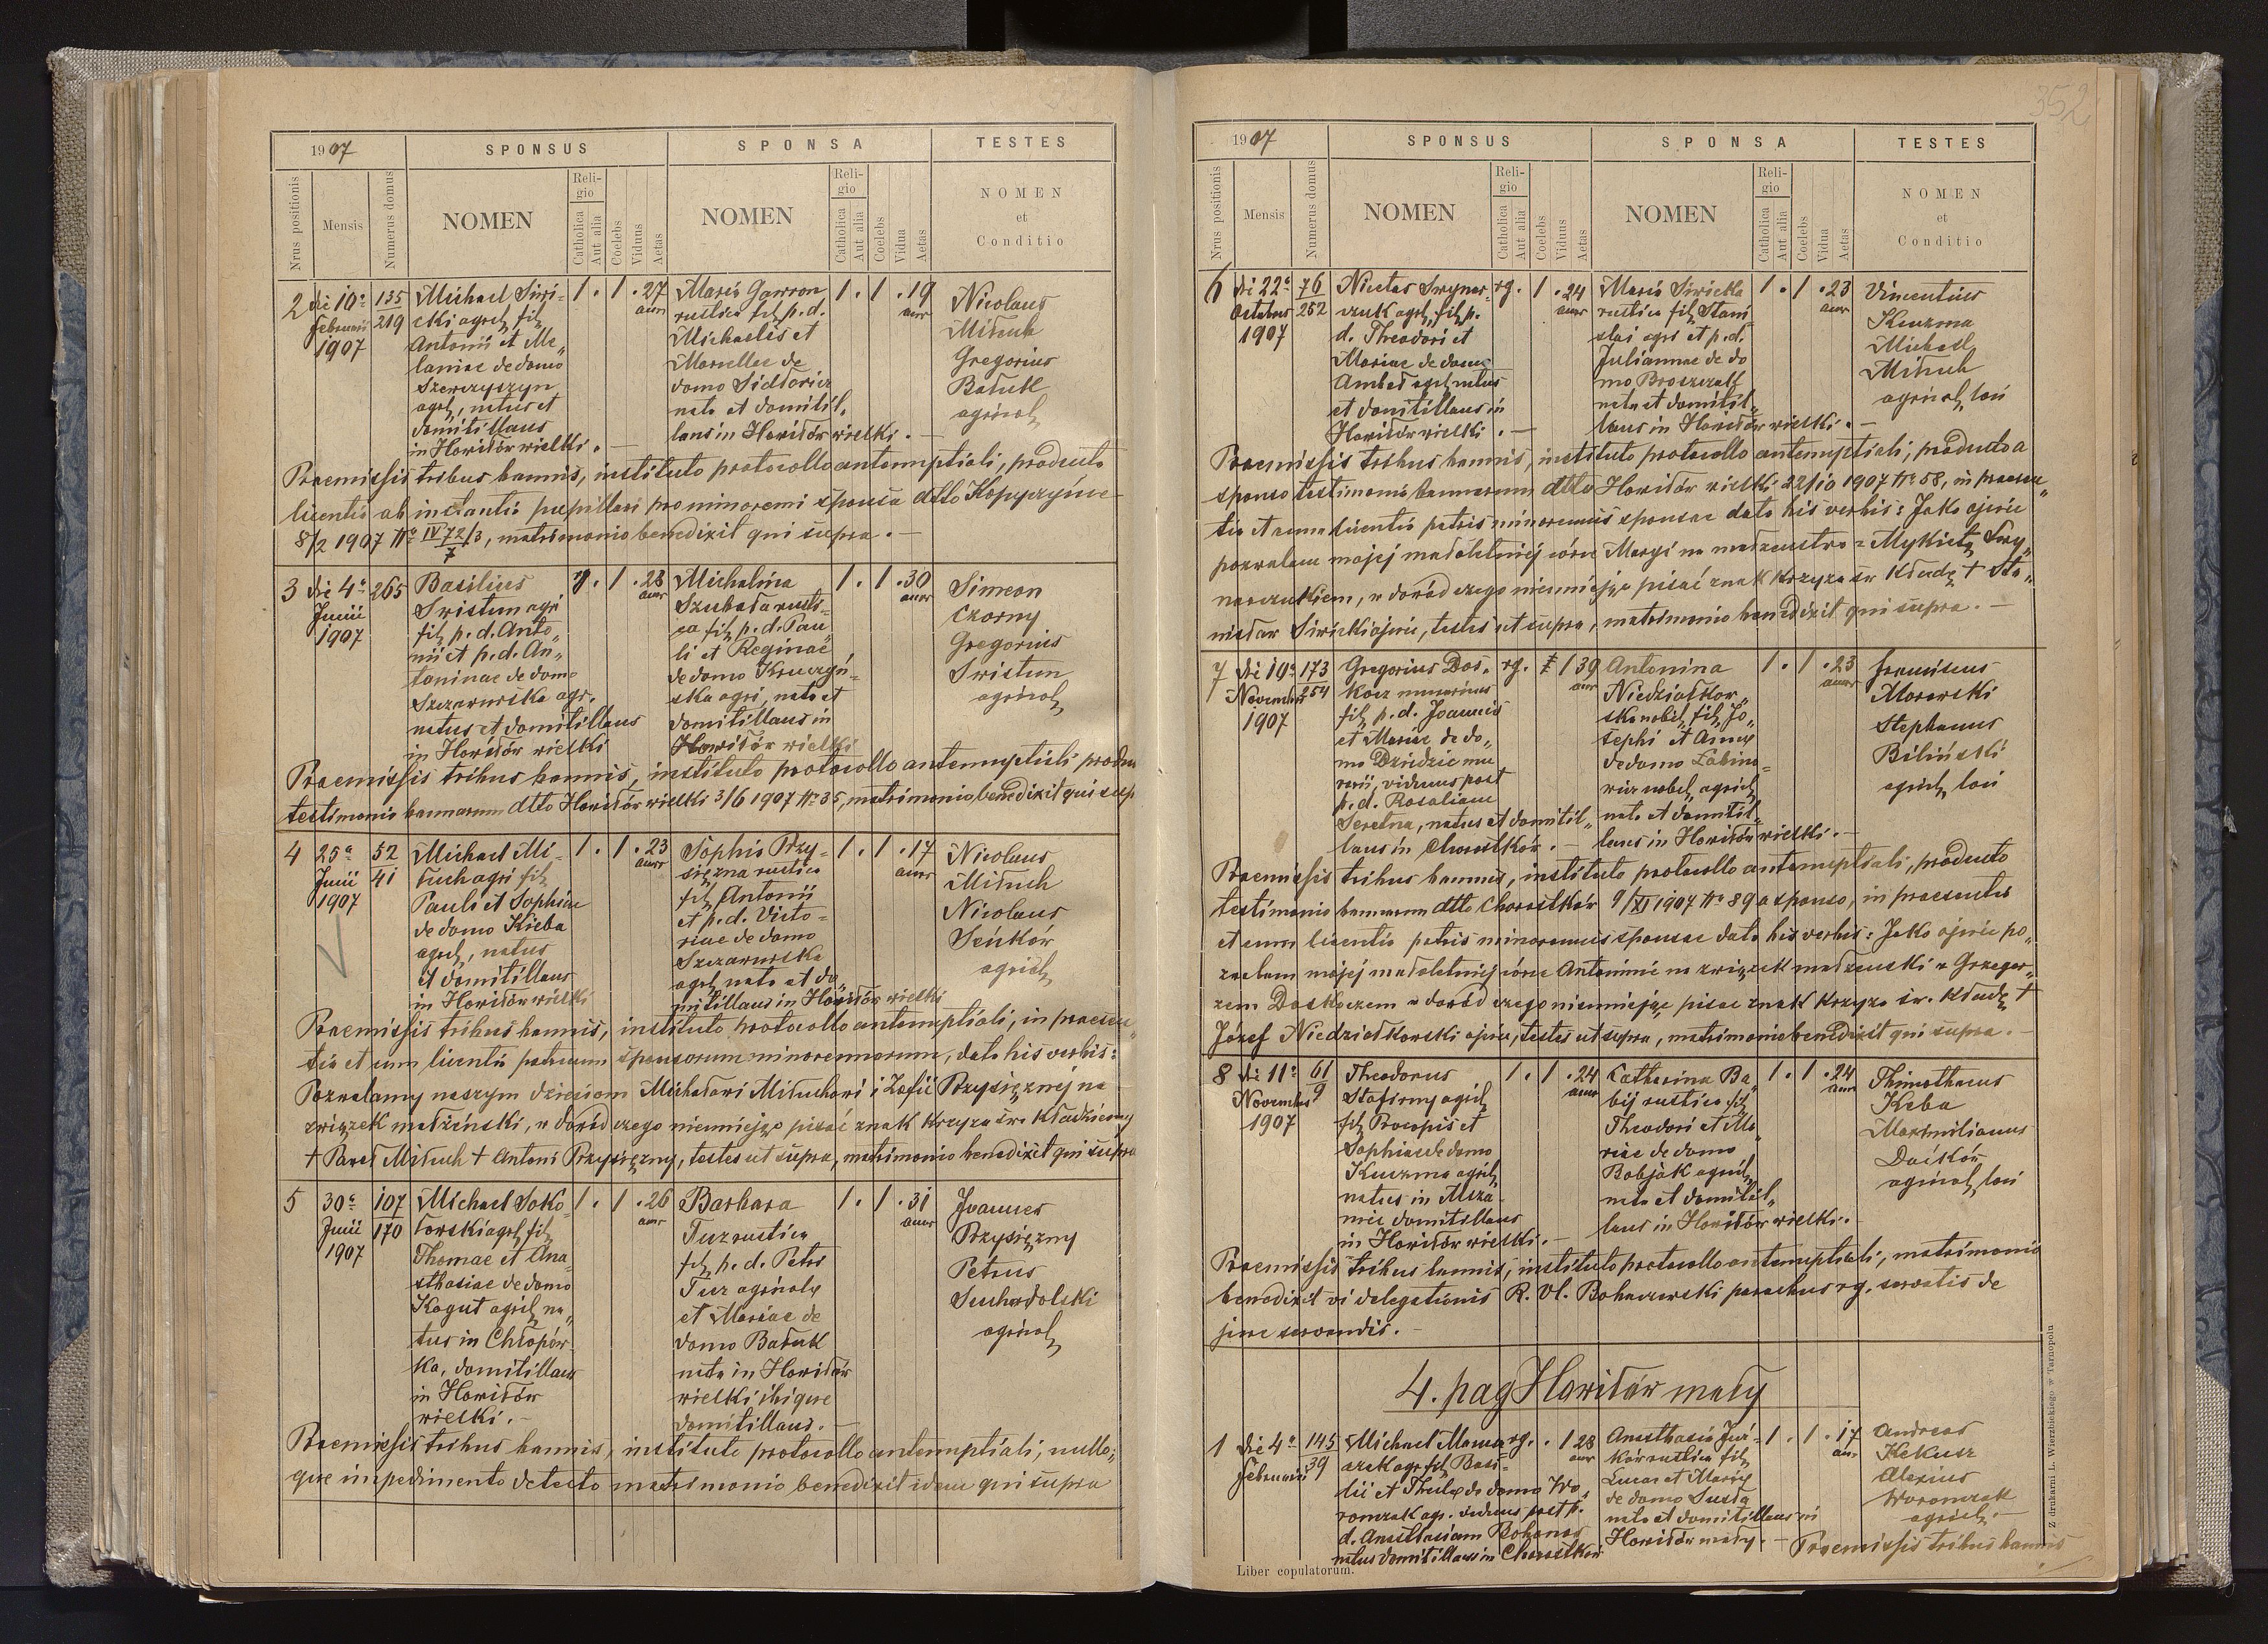 1907
SPONSUS
SPONSA
TESTES
Nrus positionis
Mensis
Numerus domus
NOMEN
Religio
Catholica
Aut alia
Coelebs
Viduus
Aetas
NOMEN
Religio
Catholica
Aut alia
Coelebs
Vidua
Aetas
NOMEN
et
Conditio
2
die 10a
Februarii
1907
135
219
Michael Siwi-
cki agrl, fil,
Antonii et Me„
laniae de domo
Szewczyszyn
agrl, natus et
domitillans
in Howiłów wielki. —
1. 1. 27
annr
Maria Gawron
rustica fil, p. d.
Michaelis et
Marcellae de
domo Sidłowicz
nata et domitil„
lans in Howiłów wielki. —
1. 1. 19
annr
Nicolaus
Mituch
Gregorius
Batuk
agricol,
Praemissis tribus bannis, instituto protocollo antenuptiali, producta
licentia ab instantia pupillari pro minoremi sponsa dtto Kopyczyńce
8/2 1907 No IV 72/7/3, matrimonio benedixit qui supra. —
3
die 4a
Junii
1907
265
Basilius
Swistun agri
fil, p. d. Anto„
nii et p. d. An„
toninae de domo
Szczawurska agr.
natus et domitillans
in Howiłów wielki
1. 28
annr
Michalina
Szubała rusti-
ca fil, p. d. Pau„
li et Reginae
de domo Kruczyń-
ska agri, nata et
domitillans in
Howiłów wielki
1. 1. 30
annor
Simeon
Czorny
Gregorius
Swistun
agricol,
Praemissis tribus bannis, instituto protocollo antenuptiali produ
testimonio bannorum dtto Howiłów wielki 3/6 1907 No 35, matrimonio benedixit qui sup
4
25a
Junii
1907
52
41
Michael Mi-
tuch agri fil,
Pauli et Sophiae
de domo Kieba
agrl, natus
et domitillans
in Howiłów wielki
1. 1. 23
annr
Sophia Przy-
siężna rustica
fil, Antonii
et p. d. Victo-
riae de domo
Szczawurska
agrl, nata et do„
mitillans in Howiłów wielki
1. 1. 17
annr
Nicolaus
Mituch
Nicolaus
Seńków
agricol,
Praemissis tribus bannis, instituto protocollo antenuptiali, in praesen„
tia et cum licentia patrum sponsorum minorennorum, data his verbis:
Pozwalamy naszym dzieciom Michałowi Mituchowi i Zofii Przysiężnej na
związek małżeński, w dowód czego nieumiejąc pisać znak krzyża św. kładziemy
+ Paweł Mituch + Antoni Przysiężny, testes ut supra, matrimonio benedixit qui supra
5
30a
Junii
1907
107
170
Michael Soko-
łowski agrl, fil,
Thomae et Ana-
sthasiae de domo
Kogut agril, na„
tus in Chłopów-
ka, domitillans
in Howiłów
wielki. —
1. 1. 26
annr
Barbara
Tuz rustica
fil, p. d. Petri
Tuz agricolae
et Mariae de
domo Batuk
nata in Howiłów
wielki ibique
domitillans. —
1. 1. 31
annr
Joannes
Przysiężny
Petrus
Suchodolski
agricol,
Praemissis tribus bannis, instituto protocollo antenuptiali, nullo„
que impedimento detecto matrimonio benedixit idem qui supra
352
1907
SPONSUS
SPONSA
TESTES
Nrus positionis
Mensis
Numerus domus
NOMEN
Religio
Catholica
Aut alia
Coelebs
Viduus
Aetas
NOMEN
Religio
Catholica
Aut alia
Coelebs
Vidua
Aetas
NOMEN
et
Conditio
6
die 22a
Octobris
1907
76
252
Nicetas Swynar-
czuk agrl, fil, p.
d. Theodori et
Mariae de domo
agrl, natus
et domitillans in
Howiłów wielki. —
rg. 1. 24
annr
Maria Siwicka
rustica fil, Stani
slai agri et p. d.
Juliannae de do
mo Broszczak
nata et domitil„
lans in Howiłów wielki. —
1. 1. 23
annr
Vincentius
Kuzma
Michael
Mituch
agricol, loci
Praemissis tribus bannis, instituto protocollo antenuptiali, producto a
sponso testimonio bannorum dtto Howiłów wielki 22/10 1907 No 58, in praesen„
tia et cum licentia patris minorennis sponsae data his verbis: Jako ojciec
pozwalam mojej małoletniej córce Maryi na małżeństwo z Mykietą Swy„
narczukiem, w dowód czego nieumiejąc pisać znak krzyża św kładę + Sta„
nisław Siwicki ojciec, testes ut supra, matrimonio benedixit qui supra. —
7
die 19a
Novembris
1907
173
254
Gregorius Dos-
kocz murarius
fil, p. d. Joannis
et Mariae de do„
mo Dzidzic mu
rarii, viduus post
p. d. Rosaliam
Seretna, natus et domitil„
lans in Chorostków. —
rg. 1 39
annr
Antonina
Niedziałkow„
ska nobil, fil, Jo„
sephi et Annae
de domo Łabino-
wicz nobil, agricol,
nata et domitil„
lans in Howiłów wielki. —
1. 1. 23
annr
Franciscus
Morawski
Stephanus
Biliński
agricol, loci
Praemissis tribus bannis, instituto protocollo antenuptiali, producto
testimonio bannorum dtto Chorostków 9/XI 1907 No 89 a sponso, in praesentia
et cum licentia patris minorennis sponsae data his verbis: Jako ojciec po„
zwalam mojej małoletniej córce Antoninie na związek małżeński z Grzegor„
zem Doskoczem w dowód czego nieumiejąc pisać znak krzyża św. kładę +
Józef Niedziałkowski ojciec, testes ut supra, matrimonio benedixit qui supra. —
8
die 11a
Novembris
1907
61
9
Theodorus
Stafirny agril,
fil, Procopii et
Sophiae de domo
Kuzma agril,
natus in Msza-
niec domitillans
in Howiłów wielki. —
1. 1. 24
annr
Catharina Ba„
bij rustica fil,
Theodori et Ma„
riae de domo
Bobjak agricol,
nata et domitil„
lans in Howiłów wielki. —
1. 1. 24
annr
Thimotheus
Keba
Maximilianus
Daćków
agricol, loci
Praemissis tribus bannis, instituto protocollo antenuptiali, matrimonio
benedixit vi delegationis R. Vl. Bohaczewski parochus rg. servatis de
jure servandis. —
4. pag Howiłów mały
1
die 4a
Februarii
145
39
Michael
agr, fil, Basi-
lii et Theclae de domo Wo„
ronczak agr. viduus post p.
d. Anasthasiam
natus domitillans in Chorostków
rg. . 1 28
annr
Anasthasia Jur-
ków rustica fil,
Lucae et Mariae
de domo Susła
nata et domitillans in
Howiłów mały. —
1. 1. 17
ann
Andreas
Kekusz
Alexius
Woronczak
agricl. —
Praemissis tribus bannis
Liber copulatorum.
Z drukarni L. Wierzbickiego w Tarnopolu